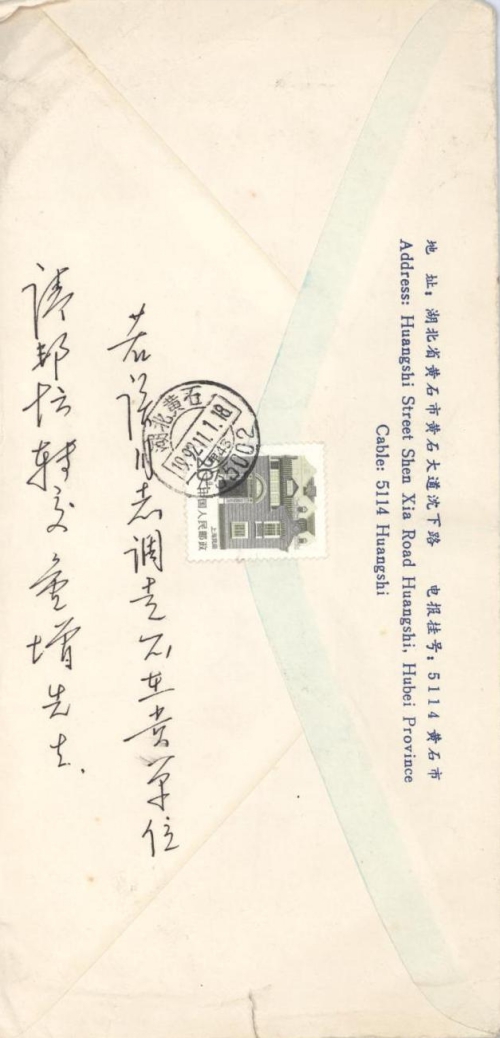 地 址：湖北省黄石市黄石大道沈下路 电报挂号：5114 黄石市
Address: Huangshi Street Shen Xia Road Huangshi, Hubei Province
Cable: 5114 Huangshi
若该同志调走不在贵单位
请帮忙转交童增先生.
湖北黄石
19.92.11.1.18
中国人民邮政
上海民居